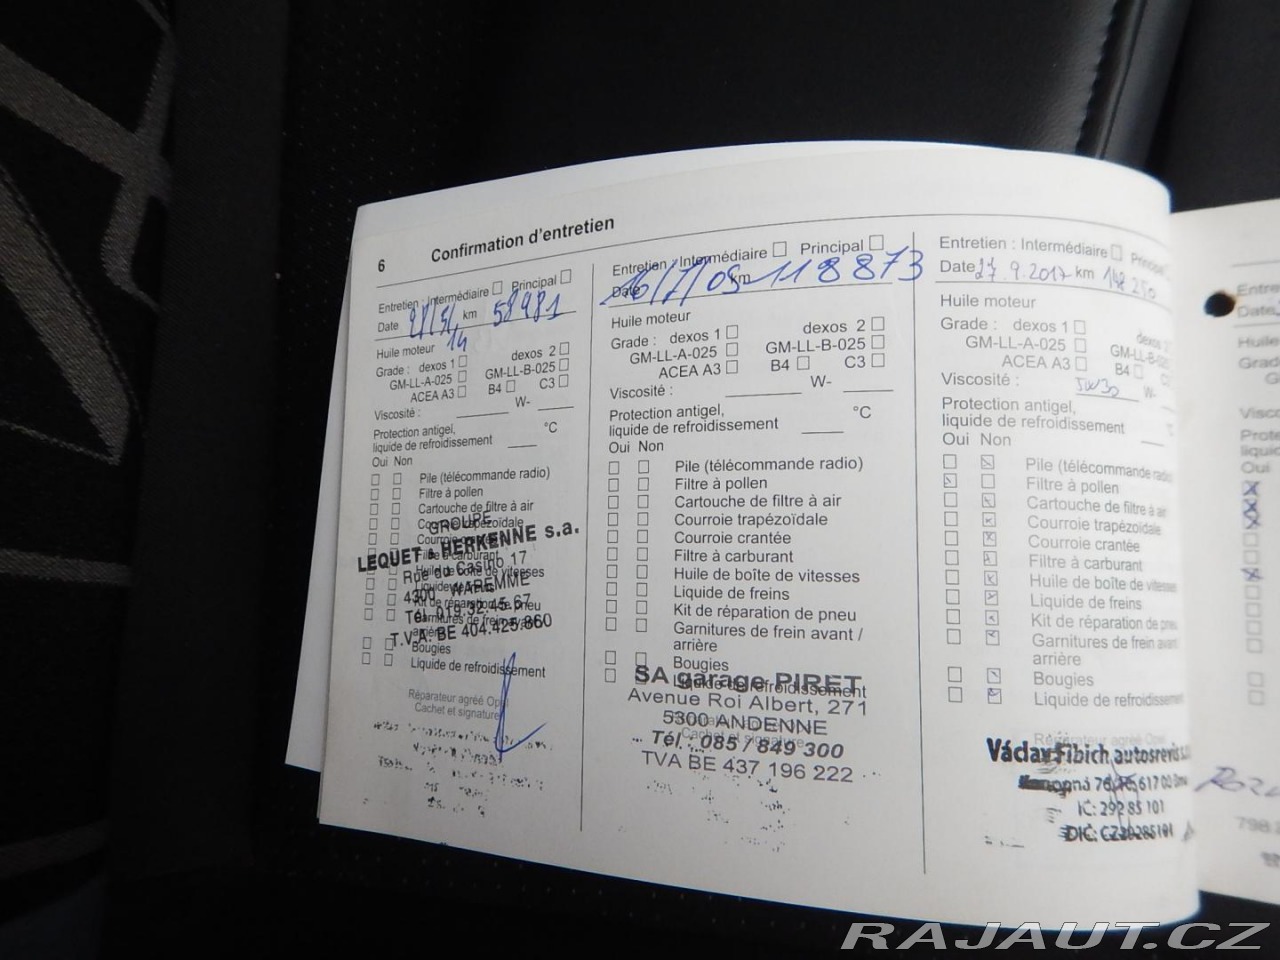 6 Confirmation d'entretien
Entretien : Intermédiaire □ Principal □
Date km 58981
14
Huile moteur
Grade : dexos 1 □ dexos 2 □
GM-LL-A-025 □ GM-LL-B-025 □
ACEA A3 □ B4 □ C3 □
Viscosité : W-
Protection antigel,
liquide de refroidissement °C
Oui Non
Pile (télécommande radio)
Filtre à pollen
Cartouche de filtre à air
Courroie trapézoïdale
GROUPE
LEQUET & HERKENNE s.a.
Rue du Casino 17
4300 WAREMME
Tél. 019.32.45.67
T.V.A. BE 404.425.860
Bougies
Liquide de refroidissement
Réparateur agréé Opel
Cachet et signature
Entretien : Intermédiaire □ Principal □
Date km 118873
Huile moteur
Grade : dexos 1 □ dexos 2 □
GM-LL-A-025 □ GM-LL-B-025 □
ACEA A3 □ B4 □ C3 □
Viscosité : W-
Protection antigel,
liquide de refroidissement °C
Oui Non
Pile (télécommande radio)
Filtre à pollen
Cartouche de filtre à air
Courroie trapézoïdale
Courroie crantée
Filtre à carburant
Huile de boîte de vitesses
Liquide de freins
Kit de réparation de pneu
Garnitures de frein avant /
arrière
Bougies
Liquide de refroidissement
SA garage PIRET
Avenue Roi Albert, 271
5300 ANDENNE
Cachet et signature
Tél.: 085 / 849 300
TVA BE 437 196 222
Entretien : Intermédiaire □
Date 27.9.2017 km 148 250
Huile moteur
Grade : dexos 1 □ dexos 2
GM-LL-A-025 □ GM-LL-B-025
ACEA A3 □ B4 □
Viscosité : 5W30 W-
Protection antigel,
liquide de refroidissement
Oui Non
Pile (télécommande radio)
Filtre à pollen
Cartouche de filtre à air
Courroie trapézoïdale
Courroie crantée
Filtre à carburant
Huile de boîte de vitesses
Liquide de freins
Kit de réparation de pneu
Garnitures de frein avant
arrière
Bougies
Liquide de refroidissement
Réparateur agréé Opel
Václav Fibich, autoservis
617 00
IČ: 292 85 101
DIČ: CZ29285101
Oui
RAJAUT.CZ